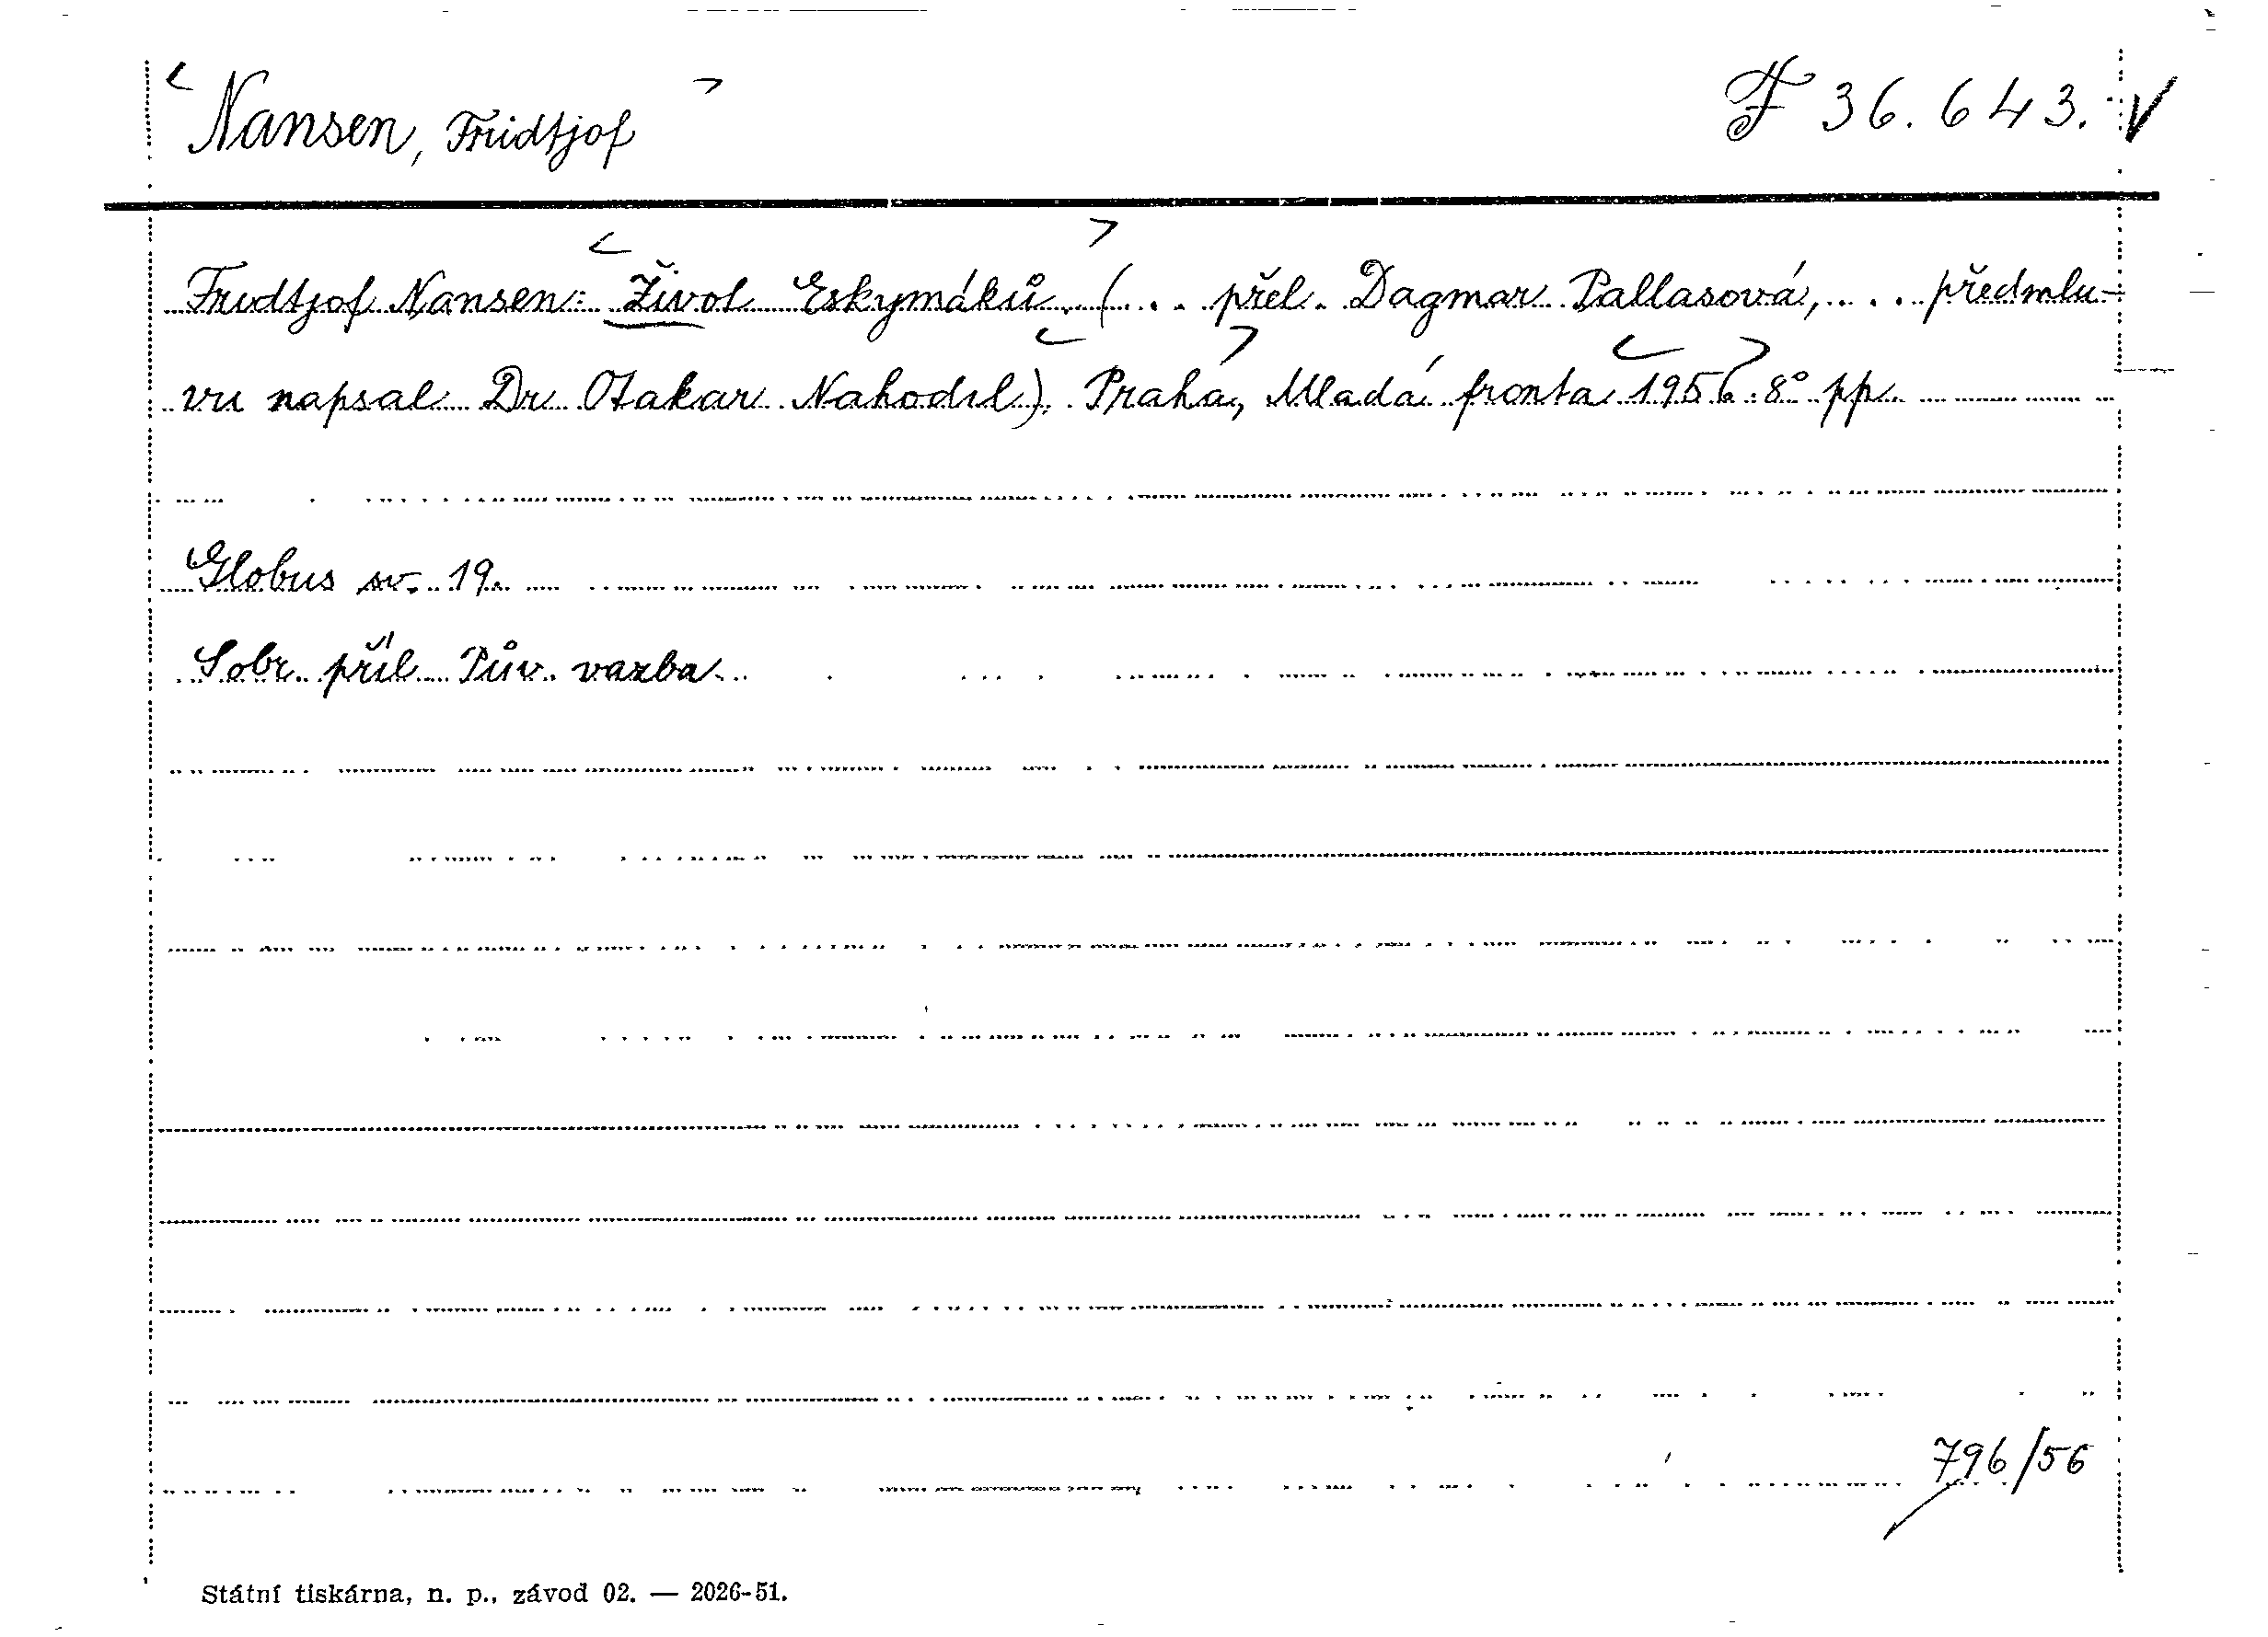 Nansen, Fridtjof F 36.643.
Fridtjof Nansen: Život Eskymáků. (... přel. Dagmar Pallasová, ... předmlu-
vu napsal Dr. Otakar Nahodil). Praha, Mladá fronta 1956. 8° pp.
Globus sv. 19.
Sobr. příl. Pův. vazba.
796/56
Státní tiskárna, n. p., závod 02. — 2026-51.